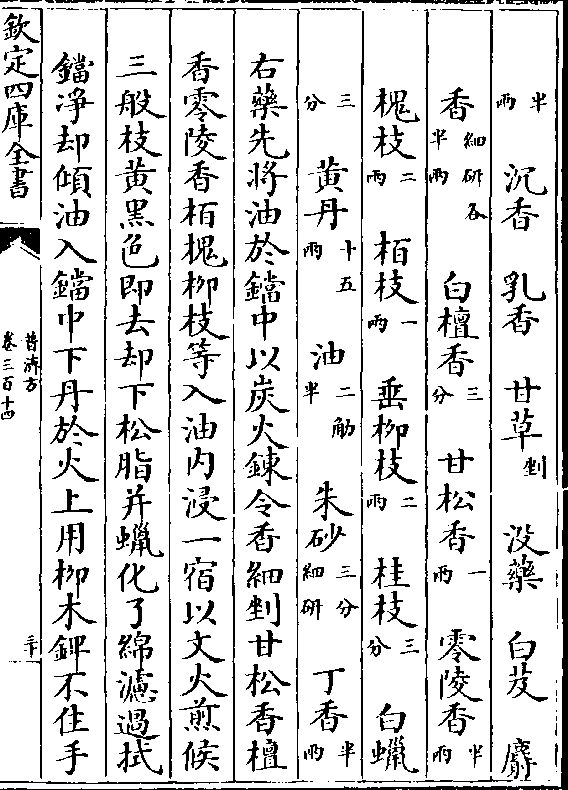 半兩　沉香　乳香　甘草剉　没藥　白芨　麝
香細研各半兩　白檀香三分　甘松香一兩　零陵香半兩
槐枝二兩　栢枝一兩　垂柳枝二兩　桂枝三分　白蠟
三分　黄丹十五兩　油二觔半　朱砂三分細研　丁香半兩
右藥先將油於鐺中以炭火鍊令香細剉甘松香檀
香零陵香栢槐柳枝等入油内浸一宿以文火煎候
三般枝黄黑色即去却下松脂并蠟化了綿濾過拭
鐺淨却傾油入鐺中下丹於火上用柳木錍不住手
欽定四庫全書
普濟方
卷三百十四
三十